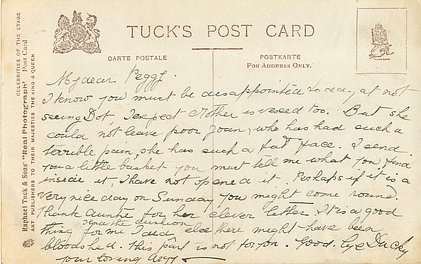 TUCK'S POST CARD
CARTE POSTALE
POSTKARTE
FOR ADDRESS ONLY.
CELEBRITIES OF THE STAGE
Raphael Tuck & Sons' "Real Photograph" Post Card
ART PUBLISHERS TO THEIR MAJESTIES THE KING & QUEEN
My dear Peggy.
I know you must be disappointed to day, at not
seeing Dot. I expect Mother is vexed too. But she
could not leave poor Joan, who has had such a
terrible pain, she has such a fat face. I send
you a little basket you must tell me what you find
inside it, I have not opened it. Perhaps if it is a
very nice day on Sunday you might come round.
Thank Auntie for her clever letter. It is a good
thing for me I did else here might have been
bloodshed. this part is not to you. Good bye Ducky
your loving